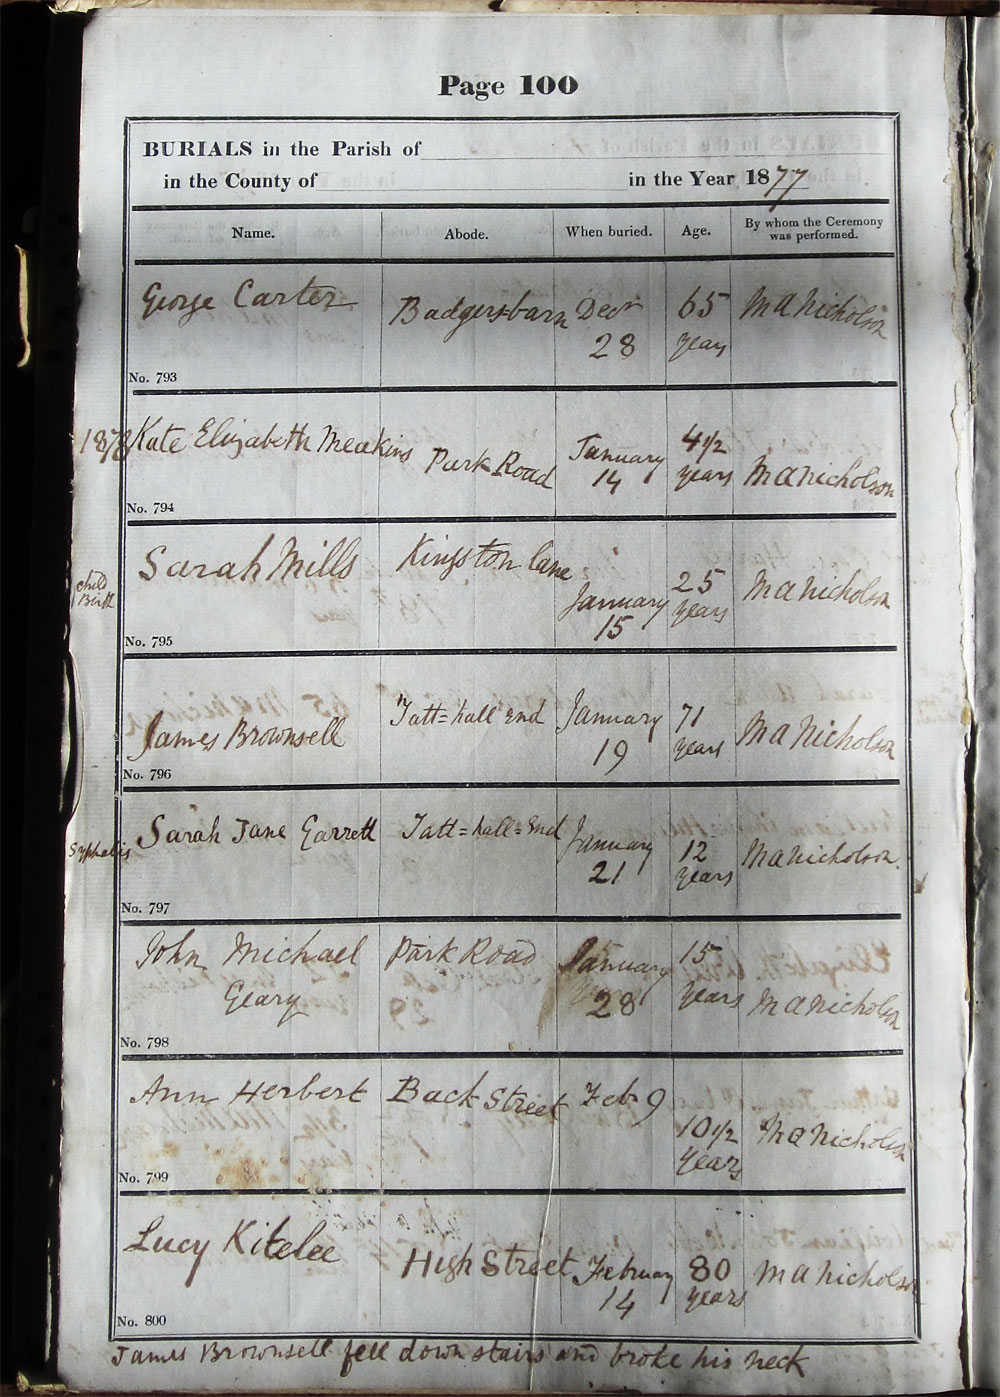 Page 100
BURIALS in the Parish of
in the County of in the Year 1877
Name. Abode. When buried. Age. By whom the Ceremony was performed.
George Carter Badgersbarn Decr 28 65 years M A Nicholson
No. 793
1878 Kate Elizabeth Meakins Park Road January 14 4 1/2 years M A Nicholson
No. 794
Child Birth Sarah Mills Kingston lane January 15 25 years M A Nicholson
No. 795
James Brownsell Tatt=hall End January 19 71 years M A Nicholson
No. 796
Syphelis Sarah Jane Garrett Tatt=hall=End January 21 12 years M A Nicholson
No. 797
John Michael Geary Park Road January 28 15 years M A Nicholson
No. 798
Ann Herbert Back Street Feb 9 10 1/2 years M A Nicholson
No. 799
Lucy Kitelee High Street February 14 80 years M A Nicholson
No. 800
James Brownsell fell down stairs and broke his neck